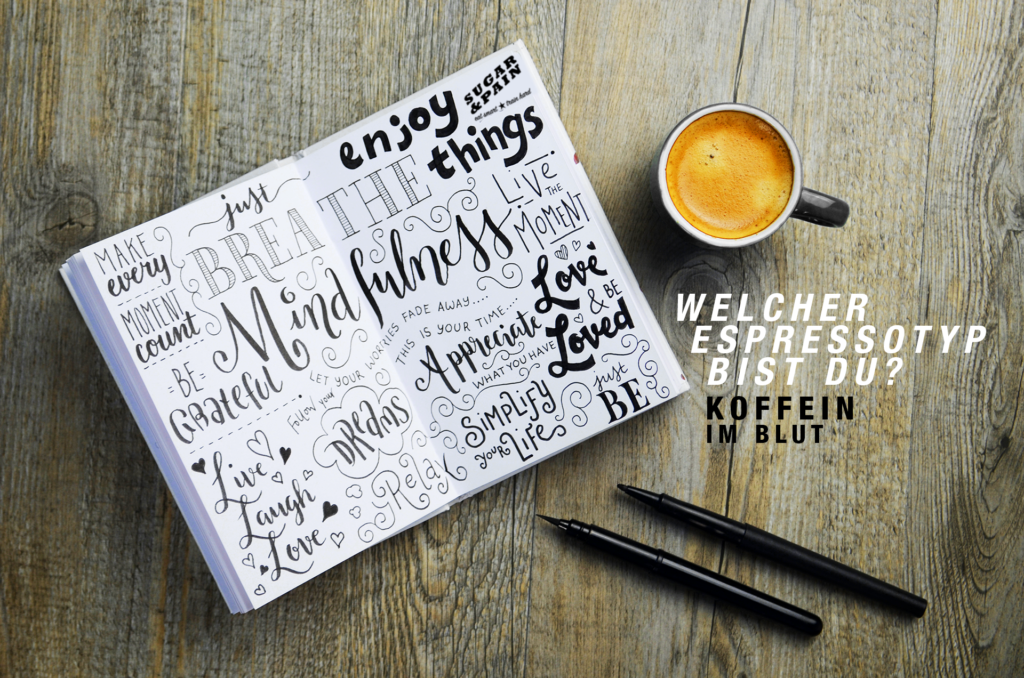 MAKE
every
MOMENT
count
just
BREATHE
Mindfulness
-BE-
Grateful
LET YOUR WORRIES FADE AWAY....
Follow your
DREAMS
Relax
Live
Laugh
Love
enjoy
SUGAR
&PAIN
eat smart ★ train hard
things
LIVE
THE
MOMENT
THIS IS YOUR TIME...
Appreciate
WHAT YOU HAVE
Love
& BE
Loved
SIMPLIFY
your Life
just
BE
WELCHER
ESPRESSOTYP
BIST DU?
KOFFEIN
IM BLUT